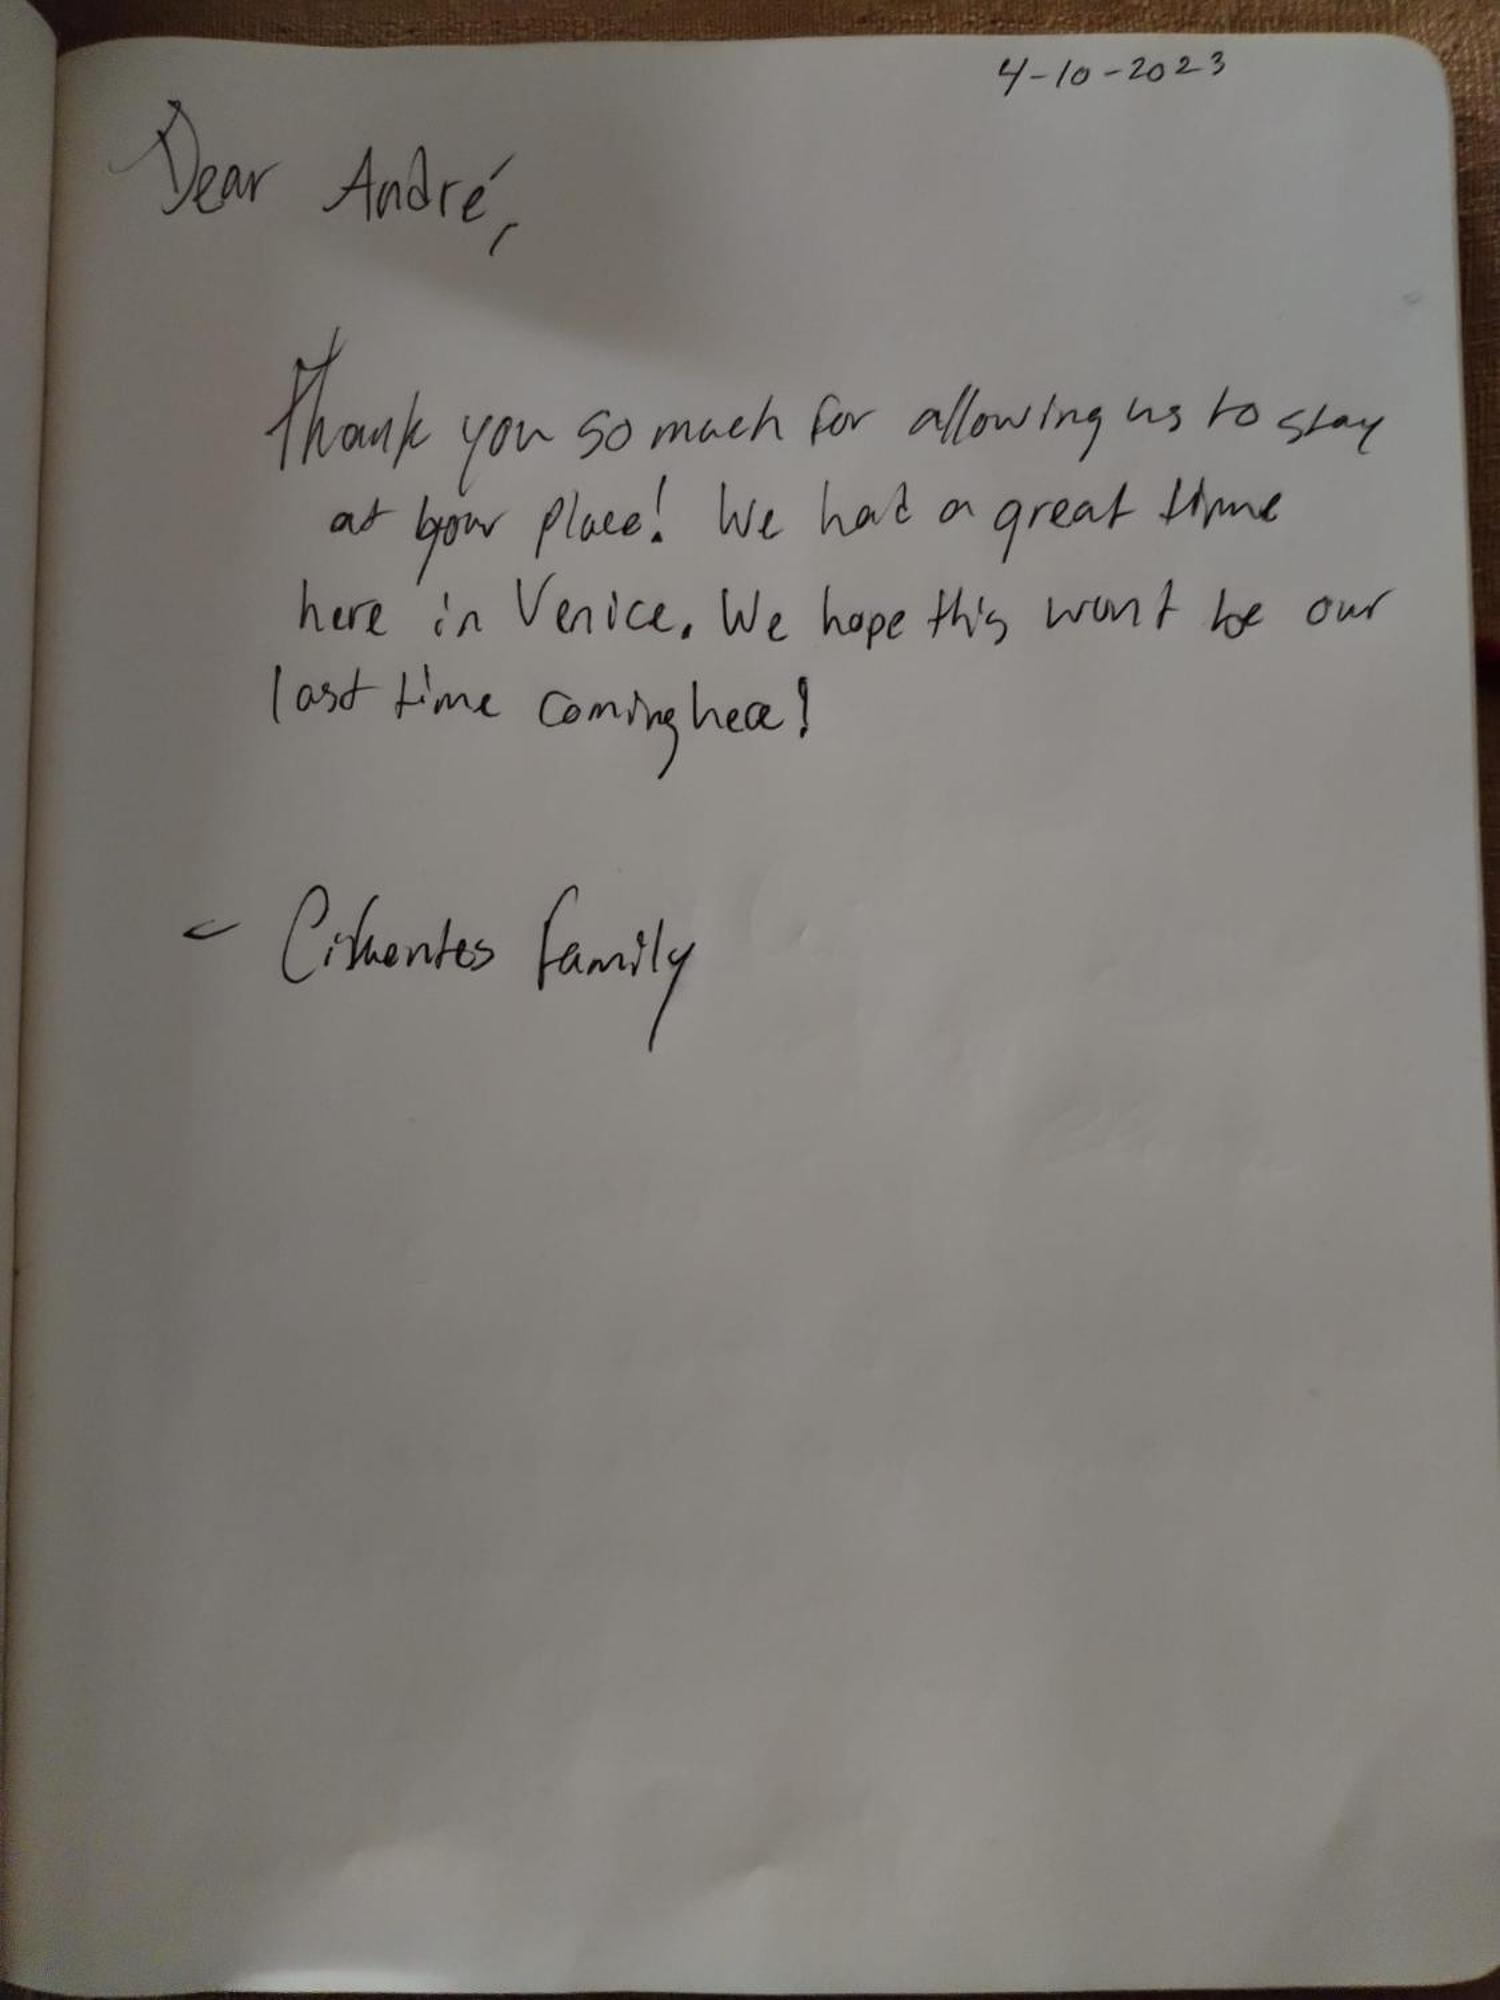 4-10-2023
Dear André,
Thank you so much for allowing us to stay
at your place! We had a great time
here in Venice. We hope this wont be our
last time coming here!
- Cifuentes family